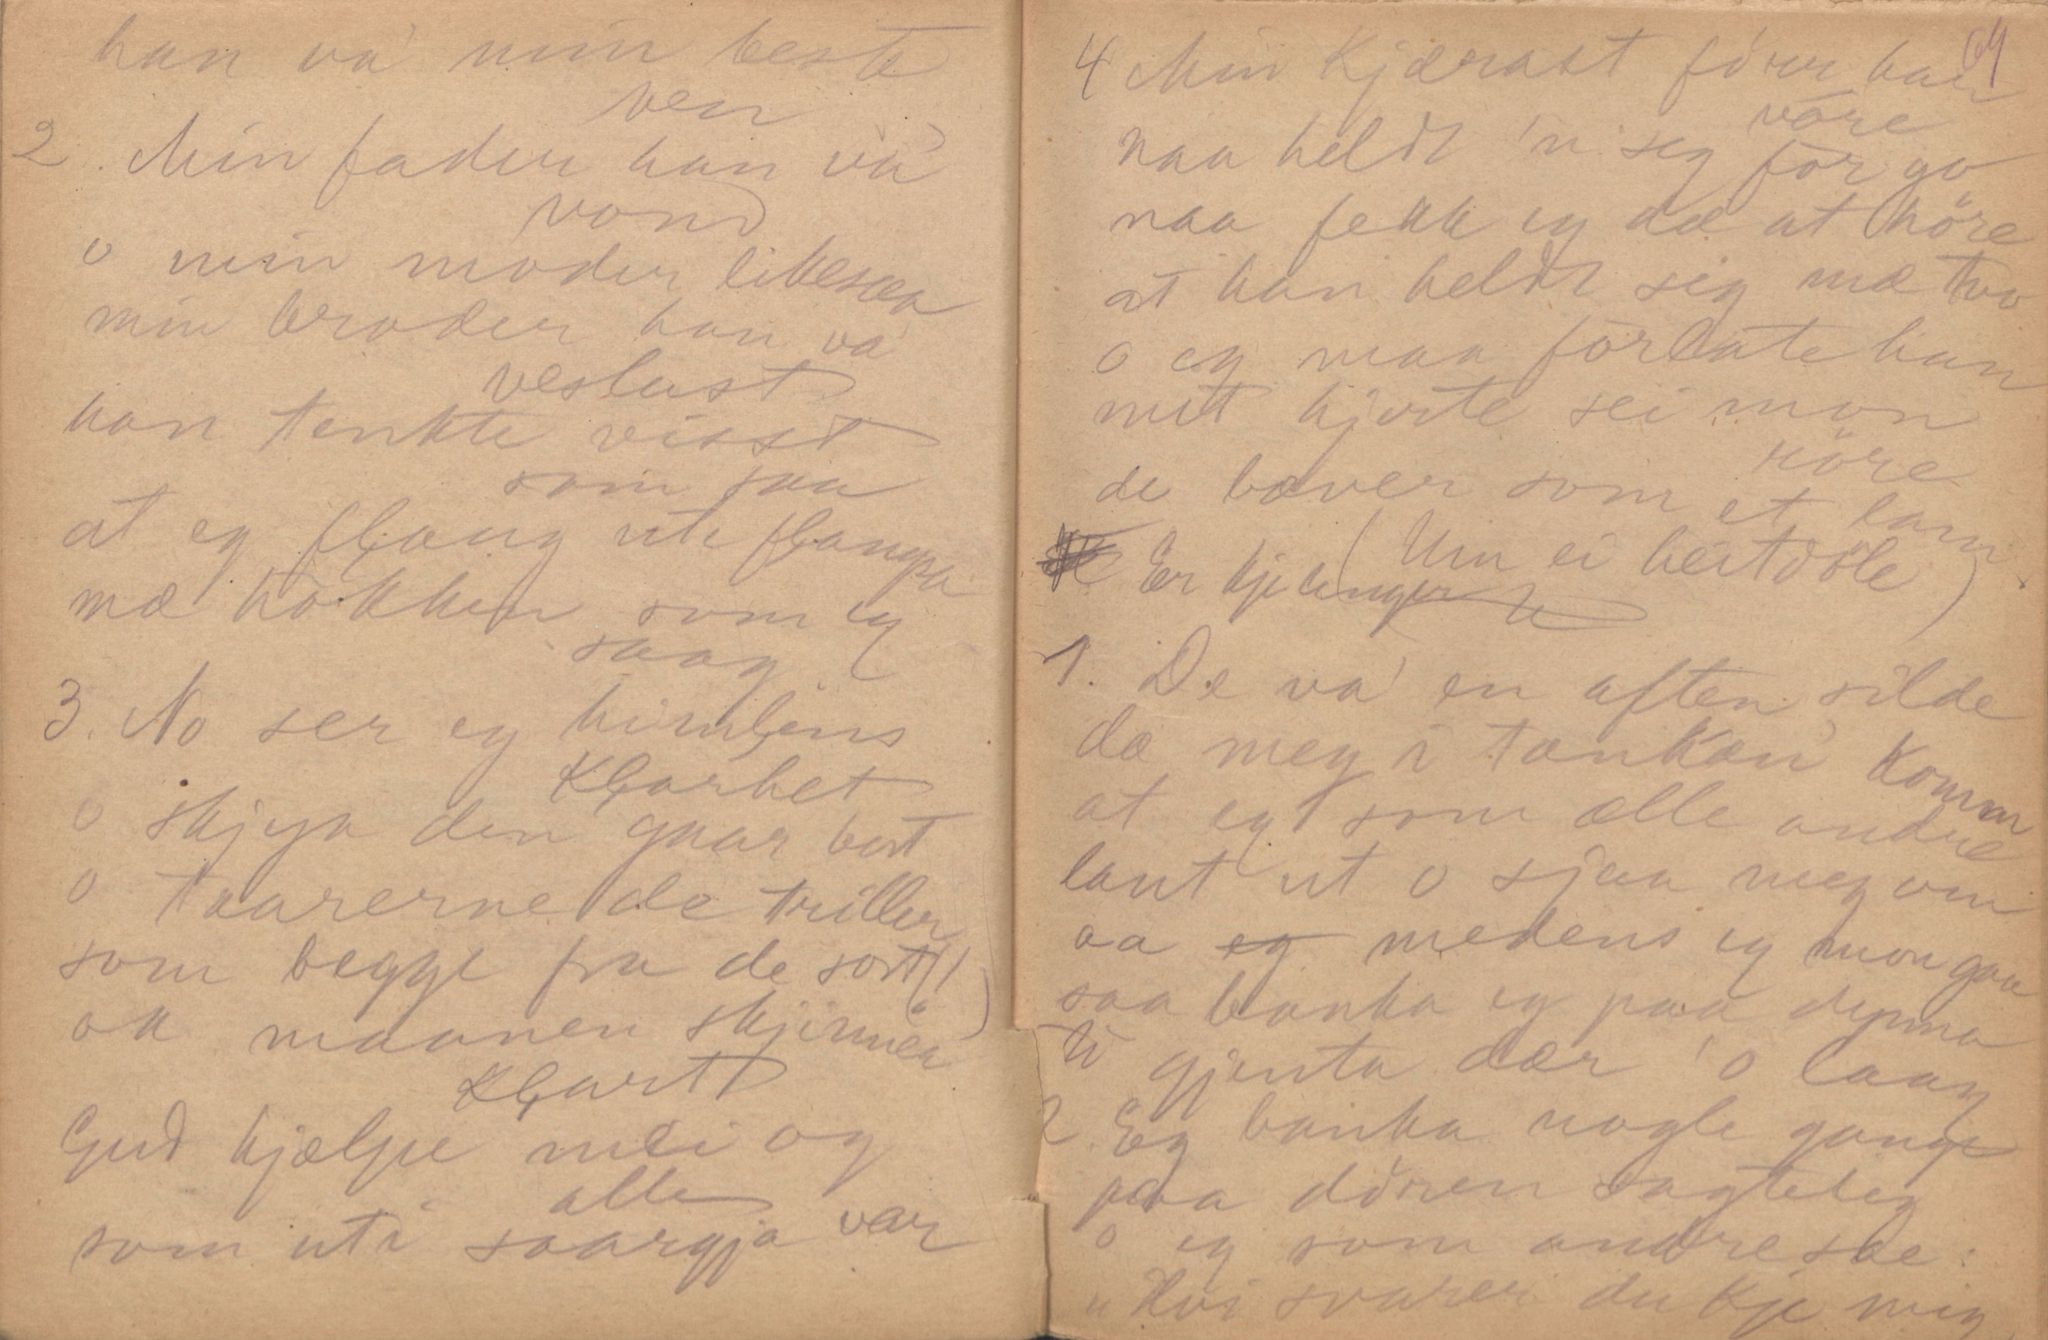 han va' min beste
ven
2. Min fader han va'
vond
o min moder likesaa
min broder han va'
veslast
han tenkte visst
som saa
at eg flaug ute flaugsa
mæ hökken som eg
saag
3. No ser eg himlens
Klarhet
o skjya den gaar bort
o taarerne de triller
som begge fra de sort (!)
ok maanen skjinner
Klart
Gud hjælpe mei og
alle
som uti saargja var
64
4 Min Kjærast förr han
vöre
naa heldt 'n seg för go
naa fekk eg dæ at höre
at han heldt sig mæ tvo
o eg maa förlate han
mit hjerte sei mon
röre
de bæver som et lam
(Um ei heitdöle)
Er kje unger
1. De va' en aften silde
da meg i tankan' komm
at eg som ælle andre
laut ut o sjaa meg om
aa eg medens eg mon gaa
saa banka eg paa dynna
ti gjenta dær 'o laag
2. Eg banka nogle gange
paa dören sagteleg
o eg som andre sae:
"Hvi svarer du kje mig